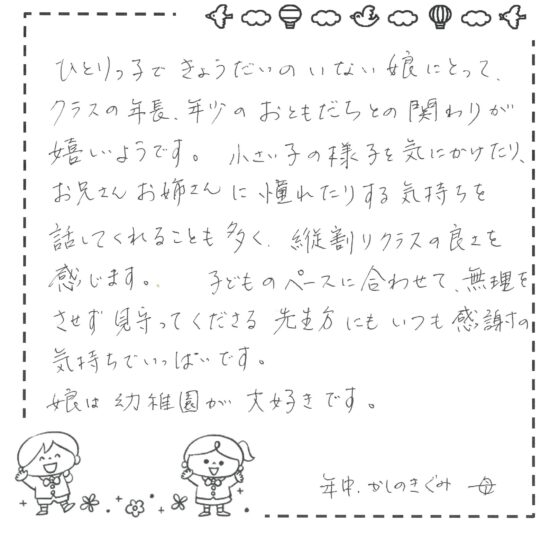 ひとりっ子で きょうだいの いない 娘にとって、
クラスの年長、年少の おともだちとの 関わりが
嬉しいようです。 小さい子の様子を気にかけたり、
お兄さん お姉さんに 憧れたりする 気持ちを
話してくれることも 多く、縦割りクラスの良さを
感じます。 子どものペースに合わせて、無理を
させず 見守ってくださる 先生方にも いつも 感謝の
気持ちでいっぱいです。
娘は 幼稚園が 大好きです。
年中、かしのきぐみ 母